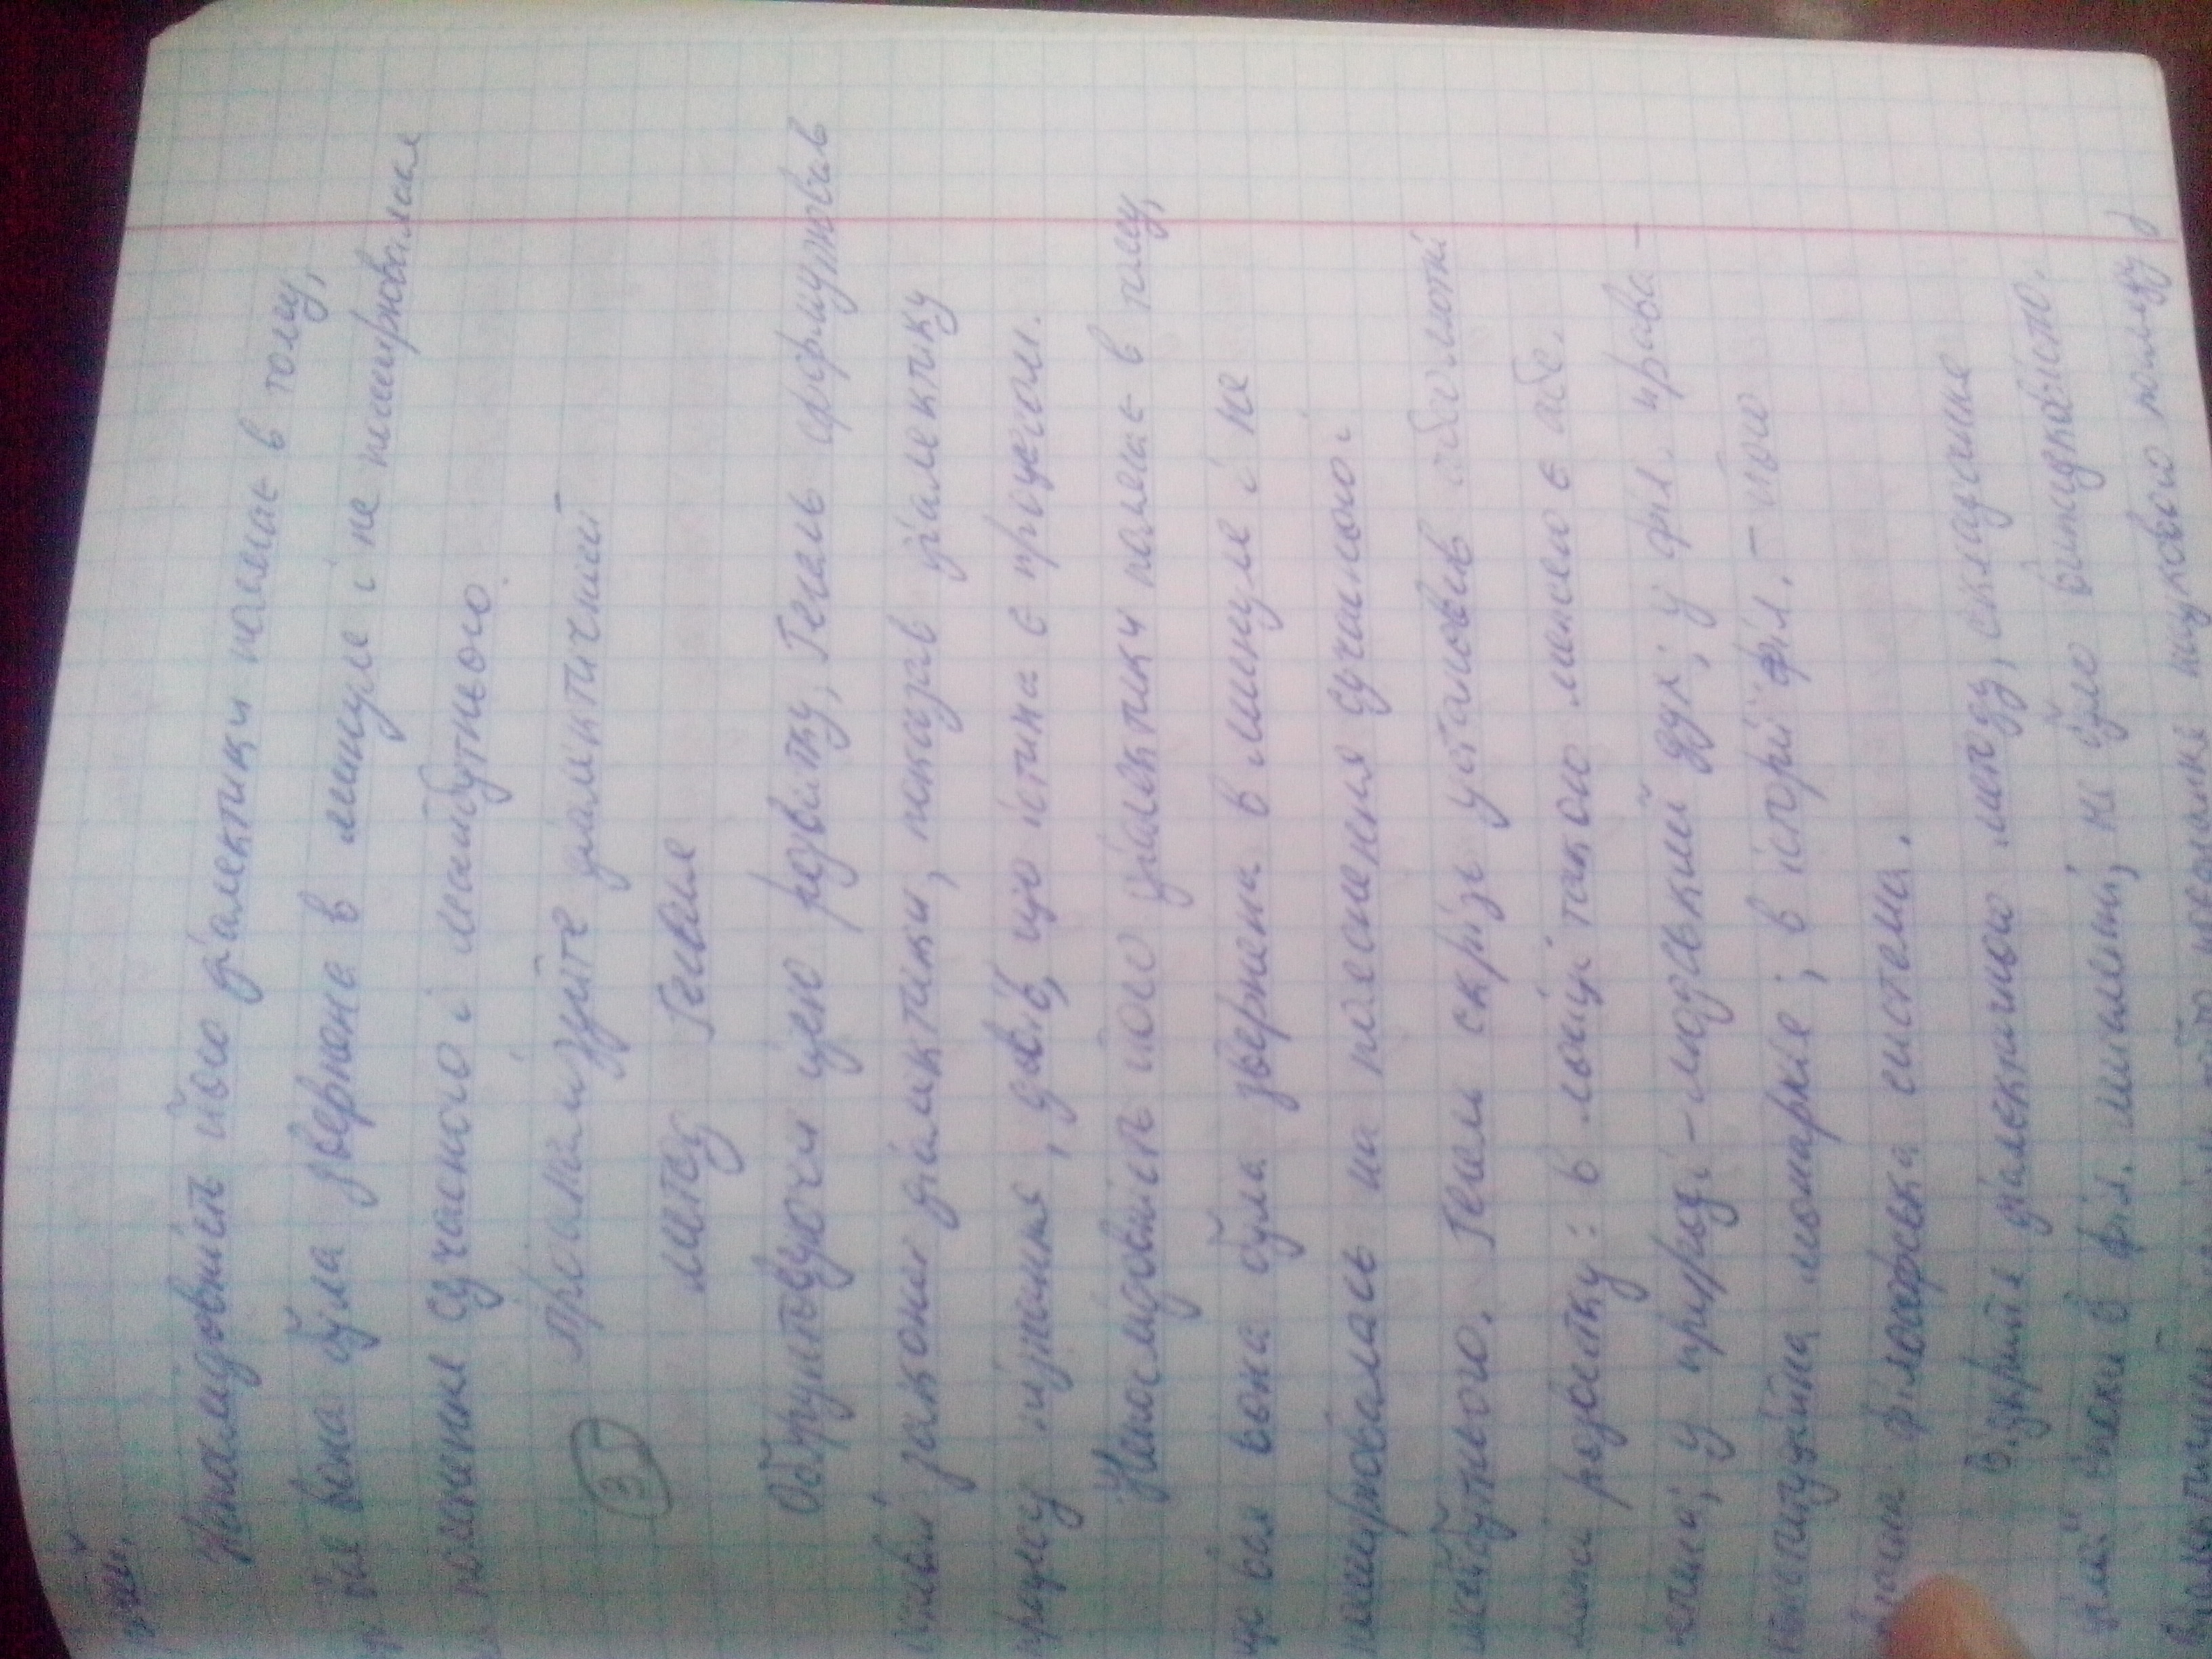 Непослідовність його діалектики полягає в тому,
вся вона була звернена в минуле і не поширювалася
пояснення сучасного і майбутнього.
3 Проаналізуйте діалектичний
метод Гегеля
Обґрунтовуючи ідею розвитку, Гегель сформулював
основні закони діалектики, показав діалектику
процесу пізнання, довів, що істина є процесом.
Непослідовність його діалектики полягає в тому,
що вся вона була звернена в минуле і не
поширювалась на пояснення сучасного і
майбутнього. Гегель скрізь установив абсолютні
межі розвитку: в логіці такою межею є абс.
істина; у природі - людський дух; у філ. права -
конституційна монархія; в історії філ. - його
власна філософська система.
Відкриття діалектичного методу, складання
ідеї в філ. мислення, не було випадковістю.